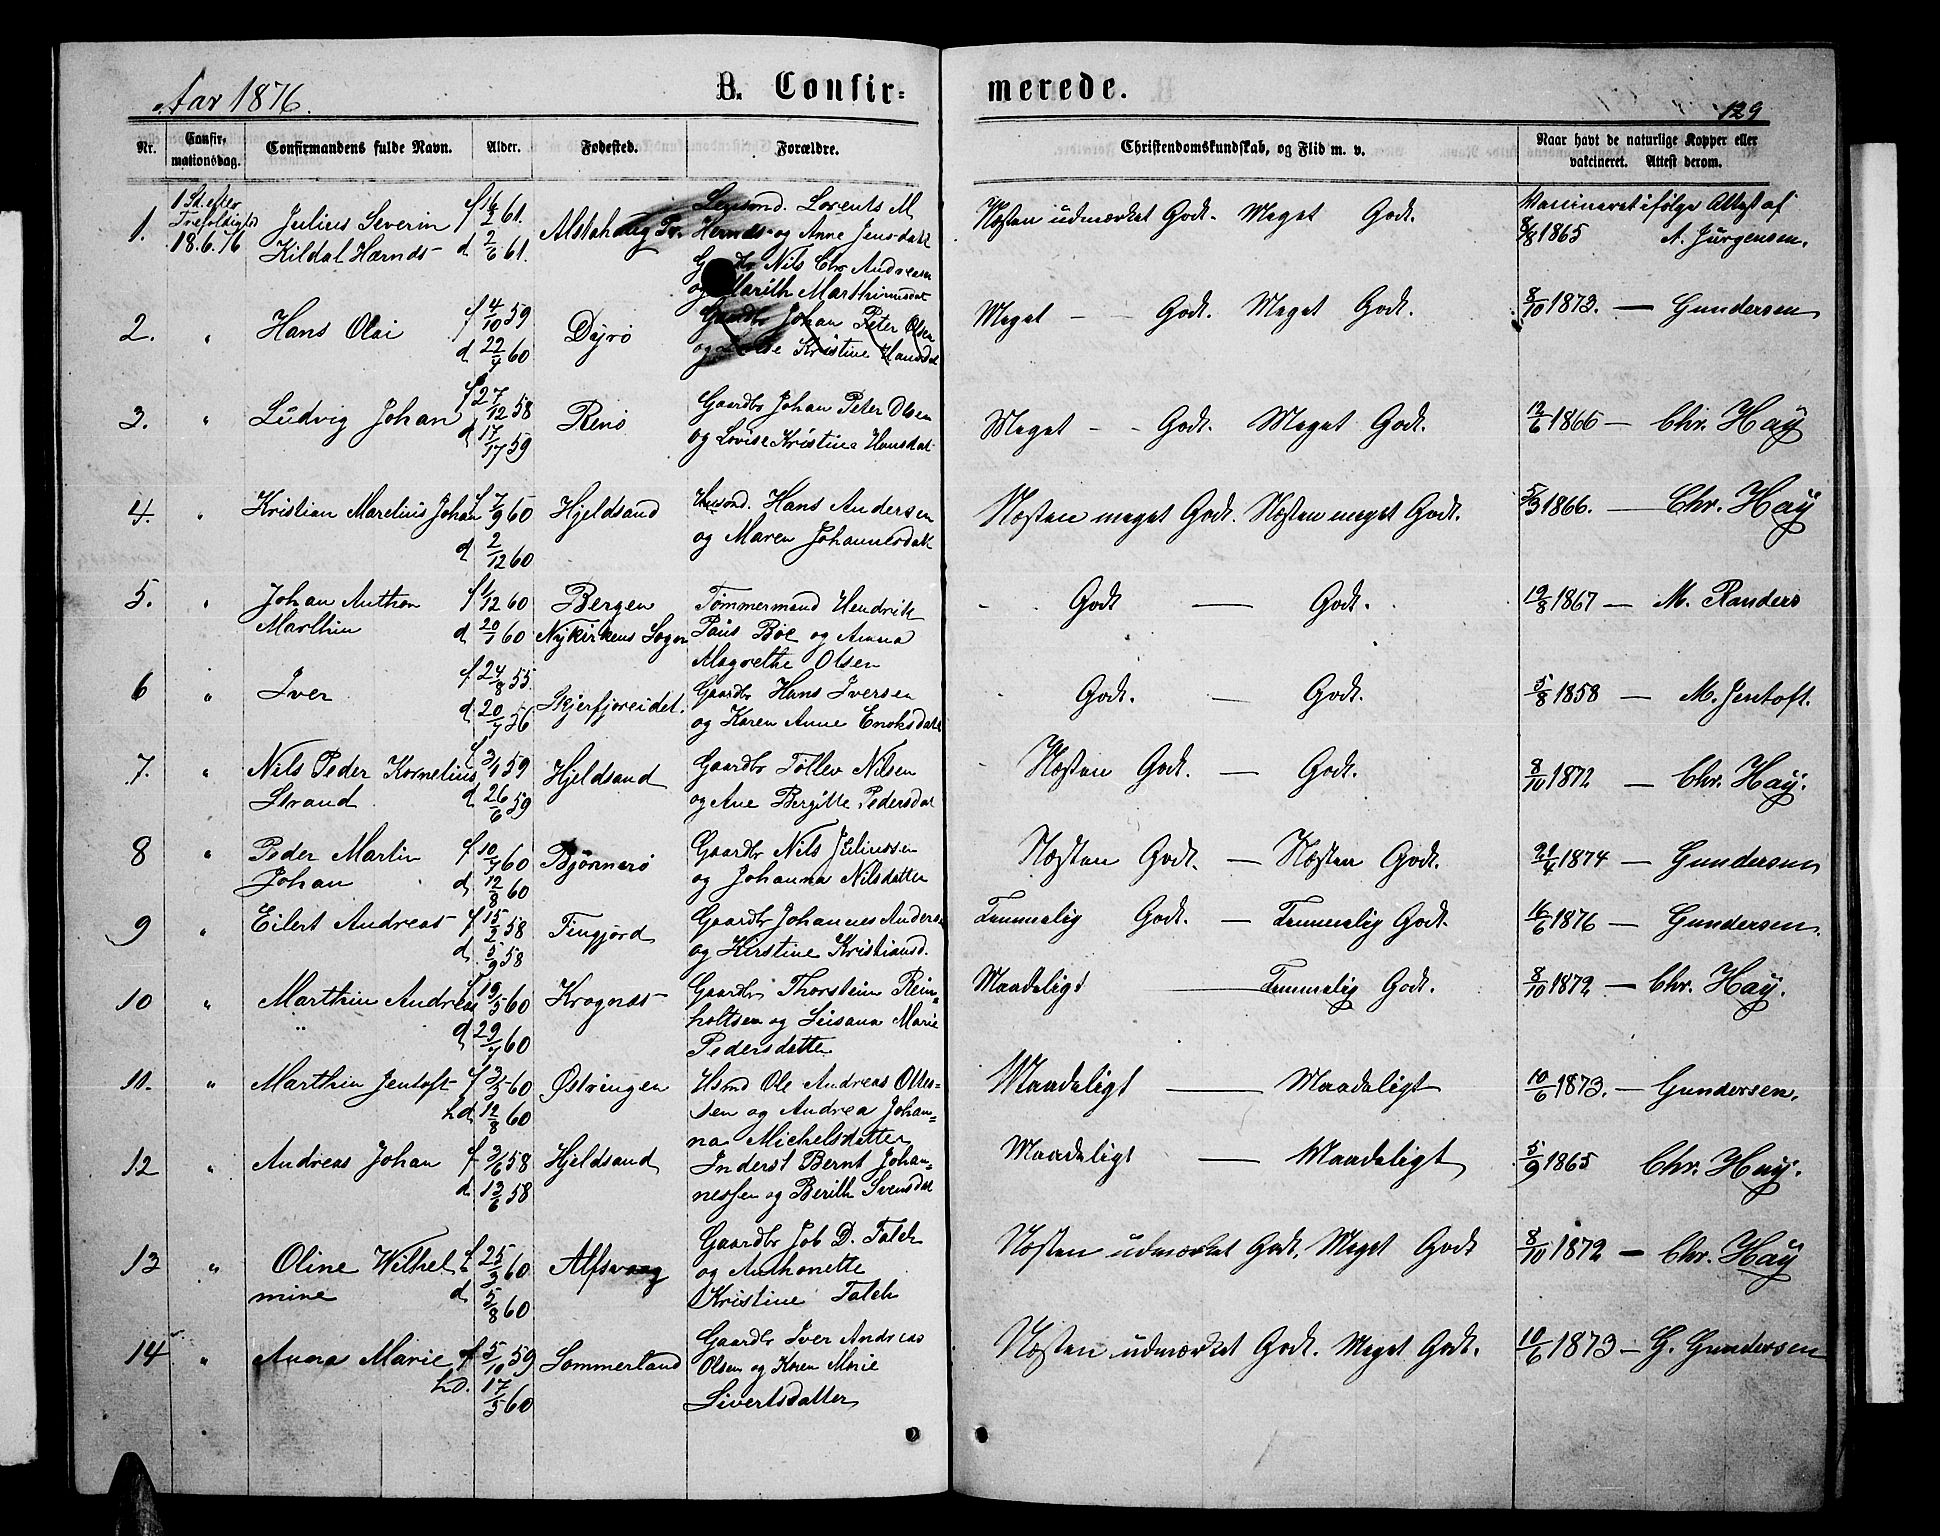 Aar 1876.
B. Confirmerede.
129
Nr.
Confirmationsdag.
Confirmandens fulde Navn.
Alder.
Fødested.
Forældre.
Christendomskundskab, og Flid m. v.
Naar havt de naturlige Kopper eller vakcineret. Attest derom.
1. 1 St. efter Trefoldighed 18.6.76
Julius Severin Kildal Hernds
f 16/2 61. d 2/6 61.
Alstahaug Pr.
Lensmd. Lorents M
Hernds og Anne Jensdatt
Næsten udmærket Godt. Meget Godt.
Vaccineret ifølge Attest af
8/8 1865 A. Jürgensen.
2. " Hans Olai
f 4/10 59 d 22/7 60
Dyrö
Nils Chr Andreasen
og Marith Marthinusdat
Gaardbr Johan Peter Olsen
og Kristine Hansdat
Meget - - Godt. Meget Godt.
8/10 1873. — Gundersen
3. " Ludvig Johan
f 27/12 58 d 17/7 59
Renö
Gaardbr Johan Peter Olsen
og Lovise Kristine Hansdat
Meget - - Godt. Meget Godt.
12/6 1866 — Chr. Hay
4. " Kristian Marelius Johan
f 7/9 60 d 2/12 60
Hjeldsand
Husmd. Hans Andersen
og Maren Johannesdatt
Næsten meget Godt. Næsten meget Godt.
5/3 1866. — Chr. Hay
5. " Johan Anthon
Marthin
f 1/12 60 d 20/1 60
Bergen
Nykirkens Sogn
Tømmermand Hendrik
Paus Böe og Anna
Magrethe Olsen
Godt — Godt.
19/8 1867 — M. Randers
6 " Iver
f 24/8 55. d 20/7 56
Skjerfjoreidet.
Gaardbr Hans Iversen
og Karen Anne Enoksdatt
Godt. — Godt.
5/8 1858 — M. Jentoft.
7. " Nils Peder Kornelius
Strand
f 3/1 59 d 26/6 59
Hjeldsand
Gaardbr Töllev Nilsen
og Ane Bergitte Pedersdat
Næsten Godt. — Godt.
8/10 1872 — Chr. Hay.
8 " Peder Martin
Johan
f 10/7 60 d 12/8 60
Björnnerö
Gaardbr Nils Juliussen
og Johanna Nilsdatter
Næsten Godt. — Næsten Godt.
21/4 1874 — Gundersen
9 " Eilert Andreas
f 15/2 58 d 5/9 58
Tingjord
Gaardbr Johannes Anders
og Kirstine Kristiansd.
Temmelig Godt. — Temmelig Godt.
16/6 1876 — Gundersen.
10 " Marthin Andreas
f 19/5 60 d 29/7 60
Krognæs
Gaardbr Thorstein Rein=
holtsen og Susana Marie
Pedersdatter
Maadeligt — Temmelig Godt.
8/10 1872 — Chr. Hay.
11. " Marthin Jentoft
f 3/5 60 hd 12/8 60
Østringen
Hsmd Ole Andreas Ottes=
sen og Andrea Johan=
na Michelsdatter
Maadeligt — Maadeligt
10/6 1873. — Gundersen.
12 " Andreas Johan
f 3/6 58 d 13/6 58
Hjeldsand
Inderst Bernt Johan=
nessen og Berith Svensdat
Maadeligt — Maadeligt
5/9 1865 Chr. Hay.
13 " Oline Wilhel=
mine
f 25/3 60 d 5/8 60
Alfsvaag
Gaardbr Job D. Falch
og Anthonette
Kristine Falch
Næsten udmærket Godt. Meget Godt
8/10 1872 — Chr. Hay
14 " Anna Marie
f 5/10 59 hd. 17/5 60
Sommerland
Gaardbr Iver Andreas
Olsen og Karen Marie
Sivertsdatter
Næsten udmærket Godt. Meget Godt.
10/6 1873 — G. Gundersen